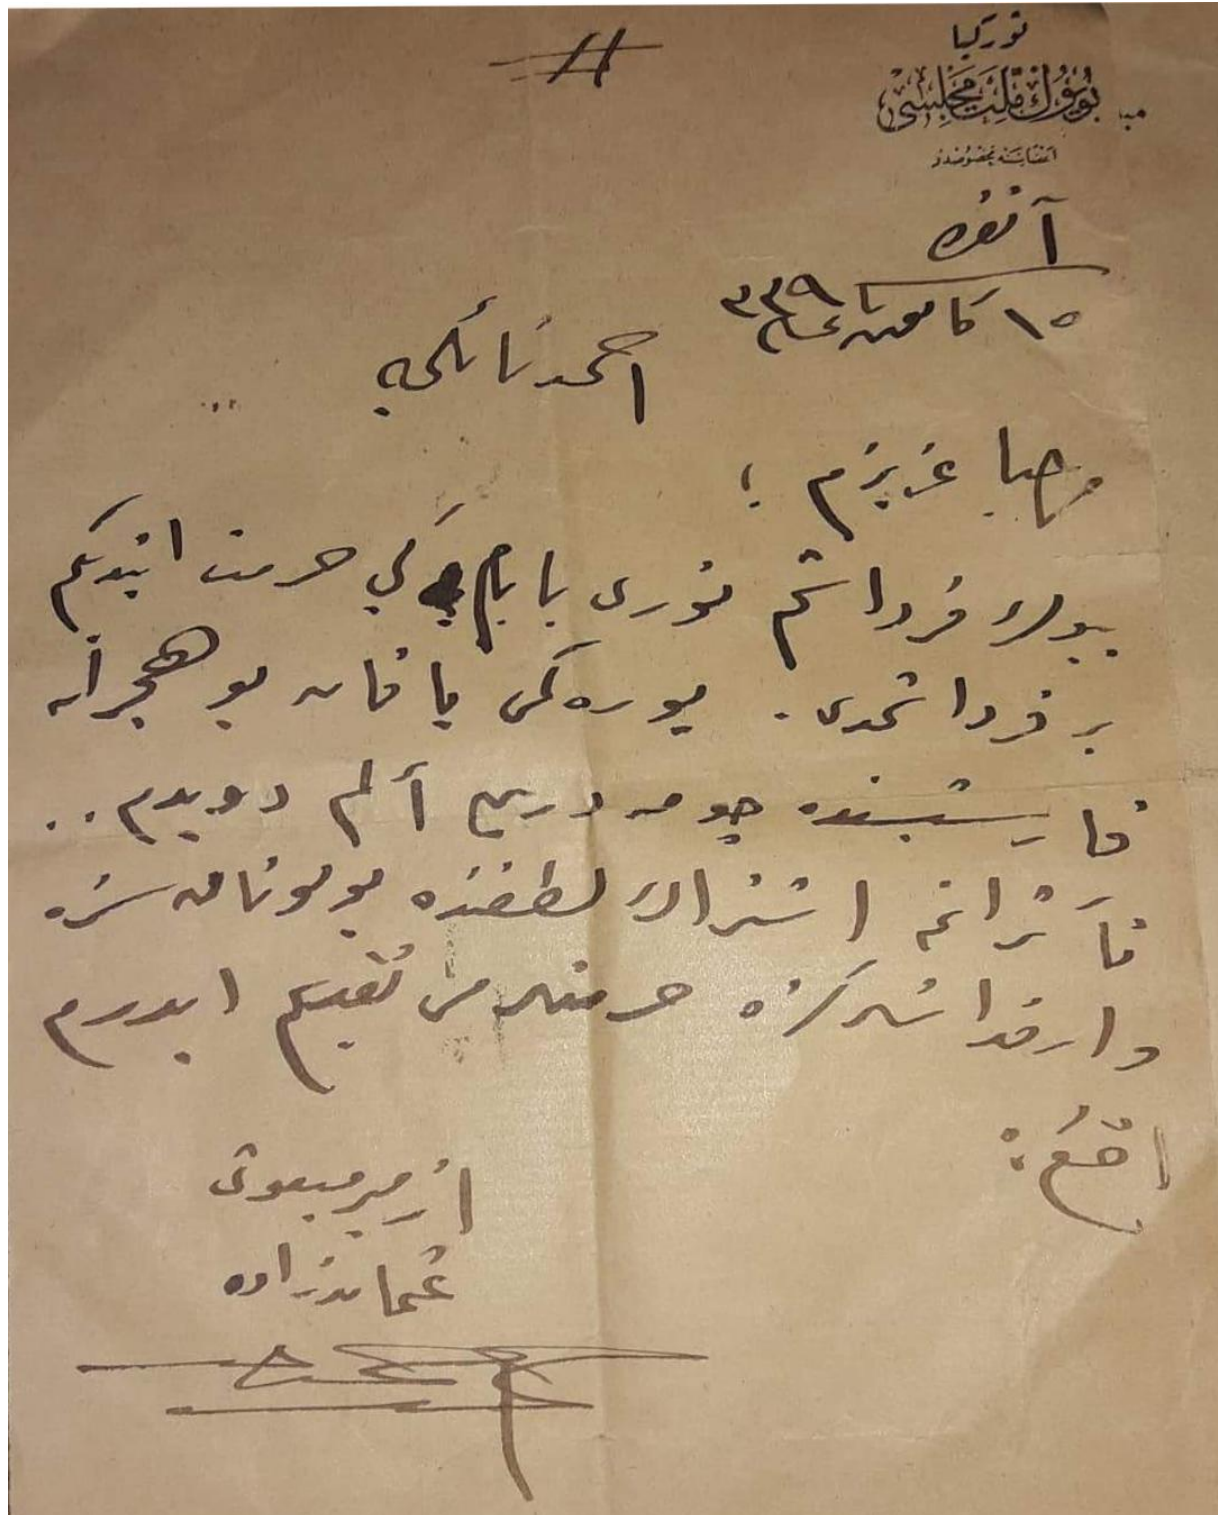 توركيا
بُيُوكْ مِلّتْ مَجْلِسِی
اعضاسنه مخصوصدر
آنقره
١٥ كانون ثانی ٣٣٩
احمد نائلی بك
مرحبا عزيزم !
بيوك قرداشم نوری بابام كبی حرمت ايتديكم
بر قرداشمدی . يوره كمی ياقان بو هجران
قارشيسنده چوق درين ألم دويدم . .
تأثراتمه اشتراك لطفنده بولونان سزه
وارقداشلركزه حرمتلرمی تقديم ايدرم
افندم :
ازمير مبعوثی
عثمانزاده